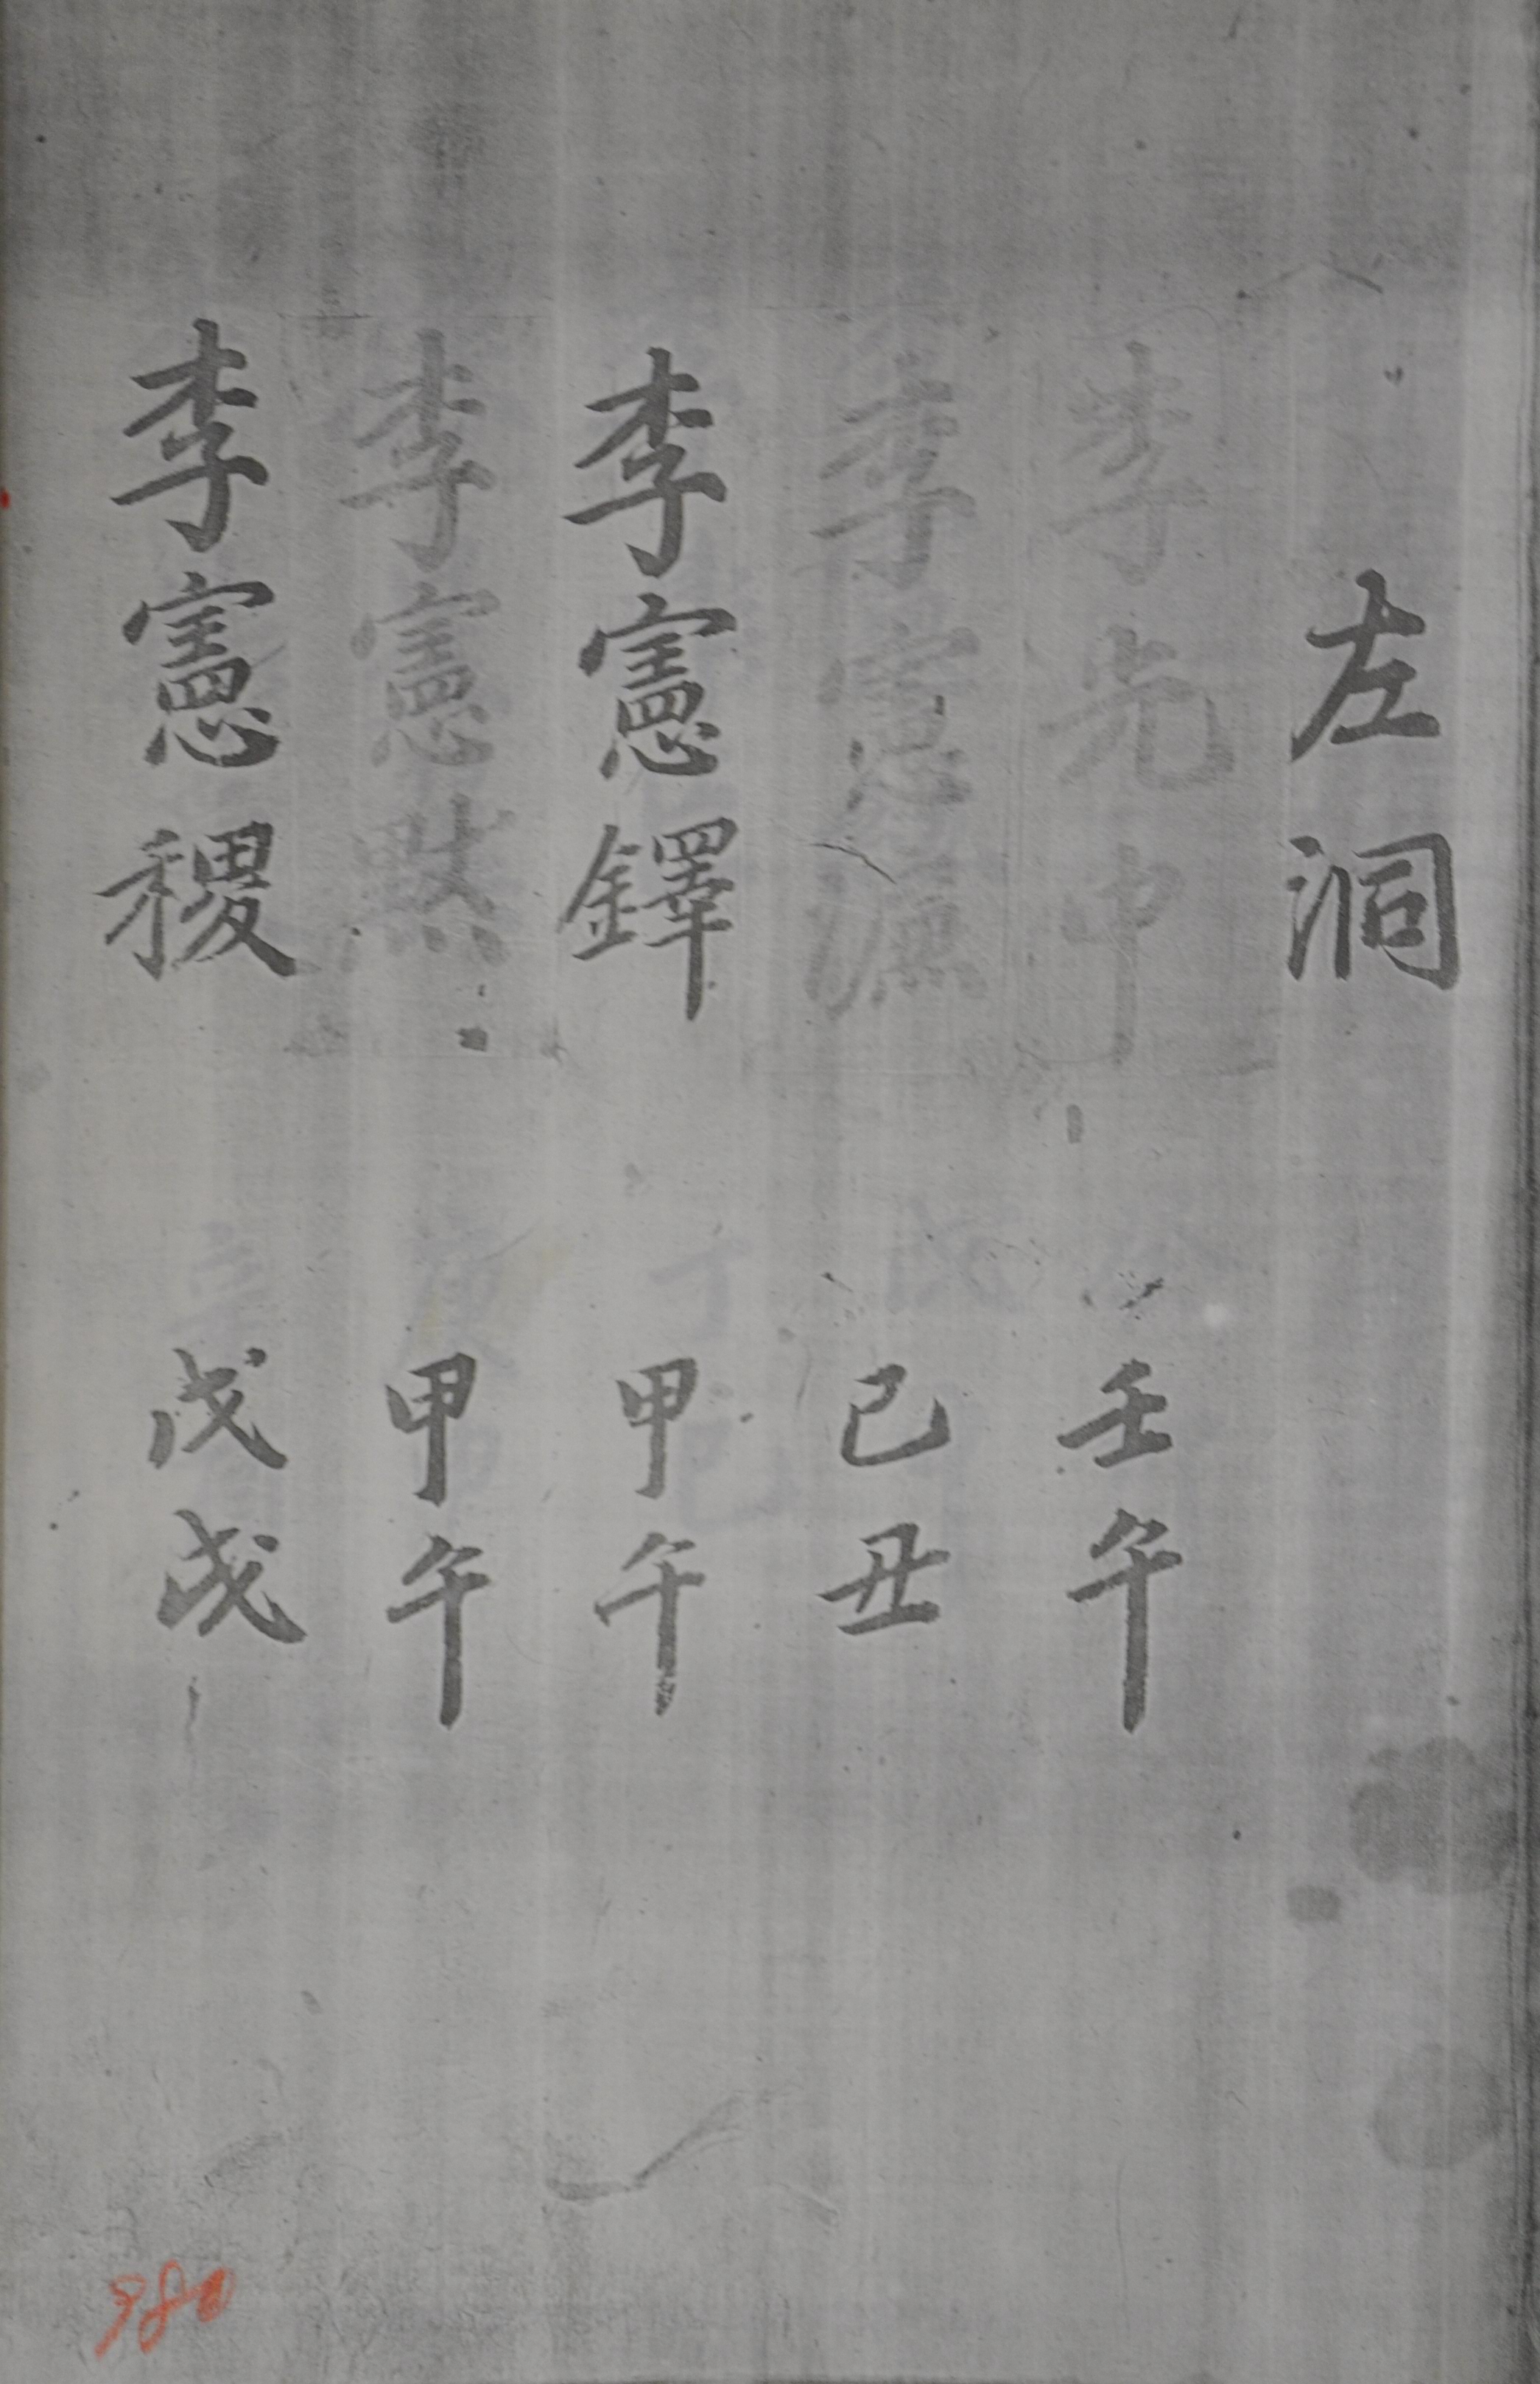 左洞
李光中 壬午
李憲 己丑
李憲鐸 甲午
李憲 甲午
李憲稷 戊戌